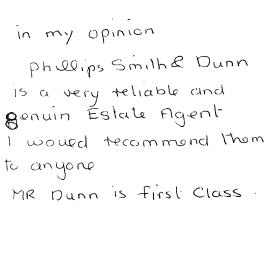 in my opinion
phillips Smith & Dunn
is a very reliable and
genuin Estate Agent
I would recommend them
to anyone
MR Dunn is first Class.